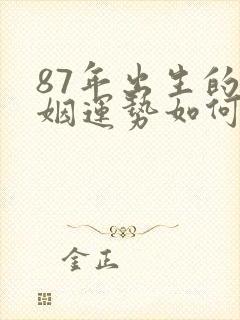 87年出生的
姻運勢如何
金正